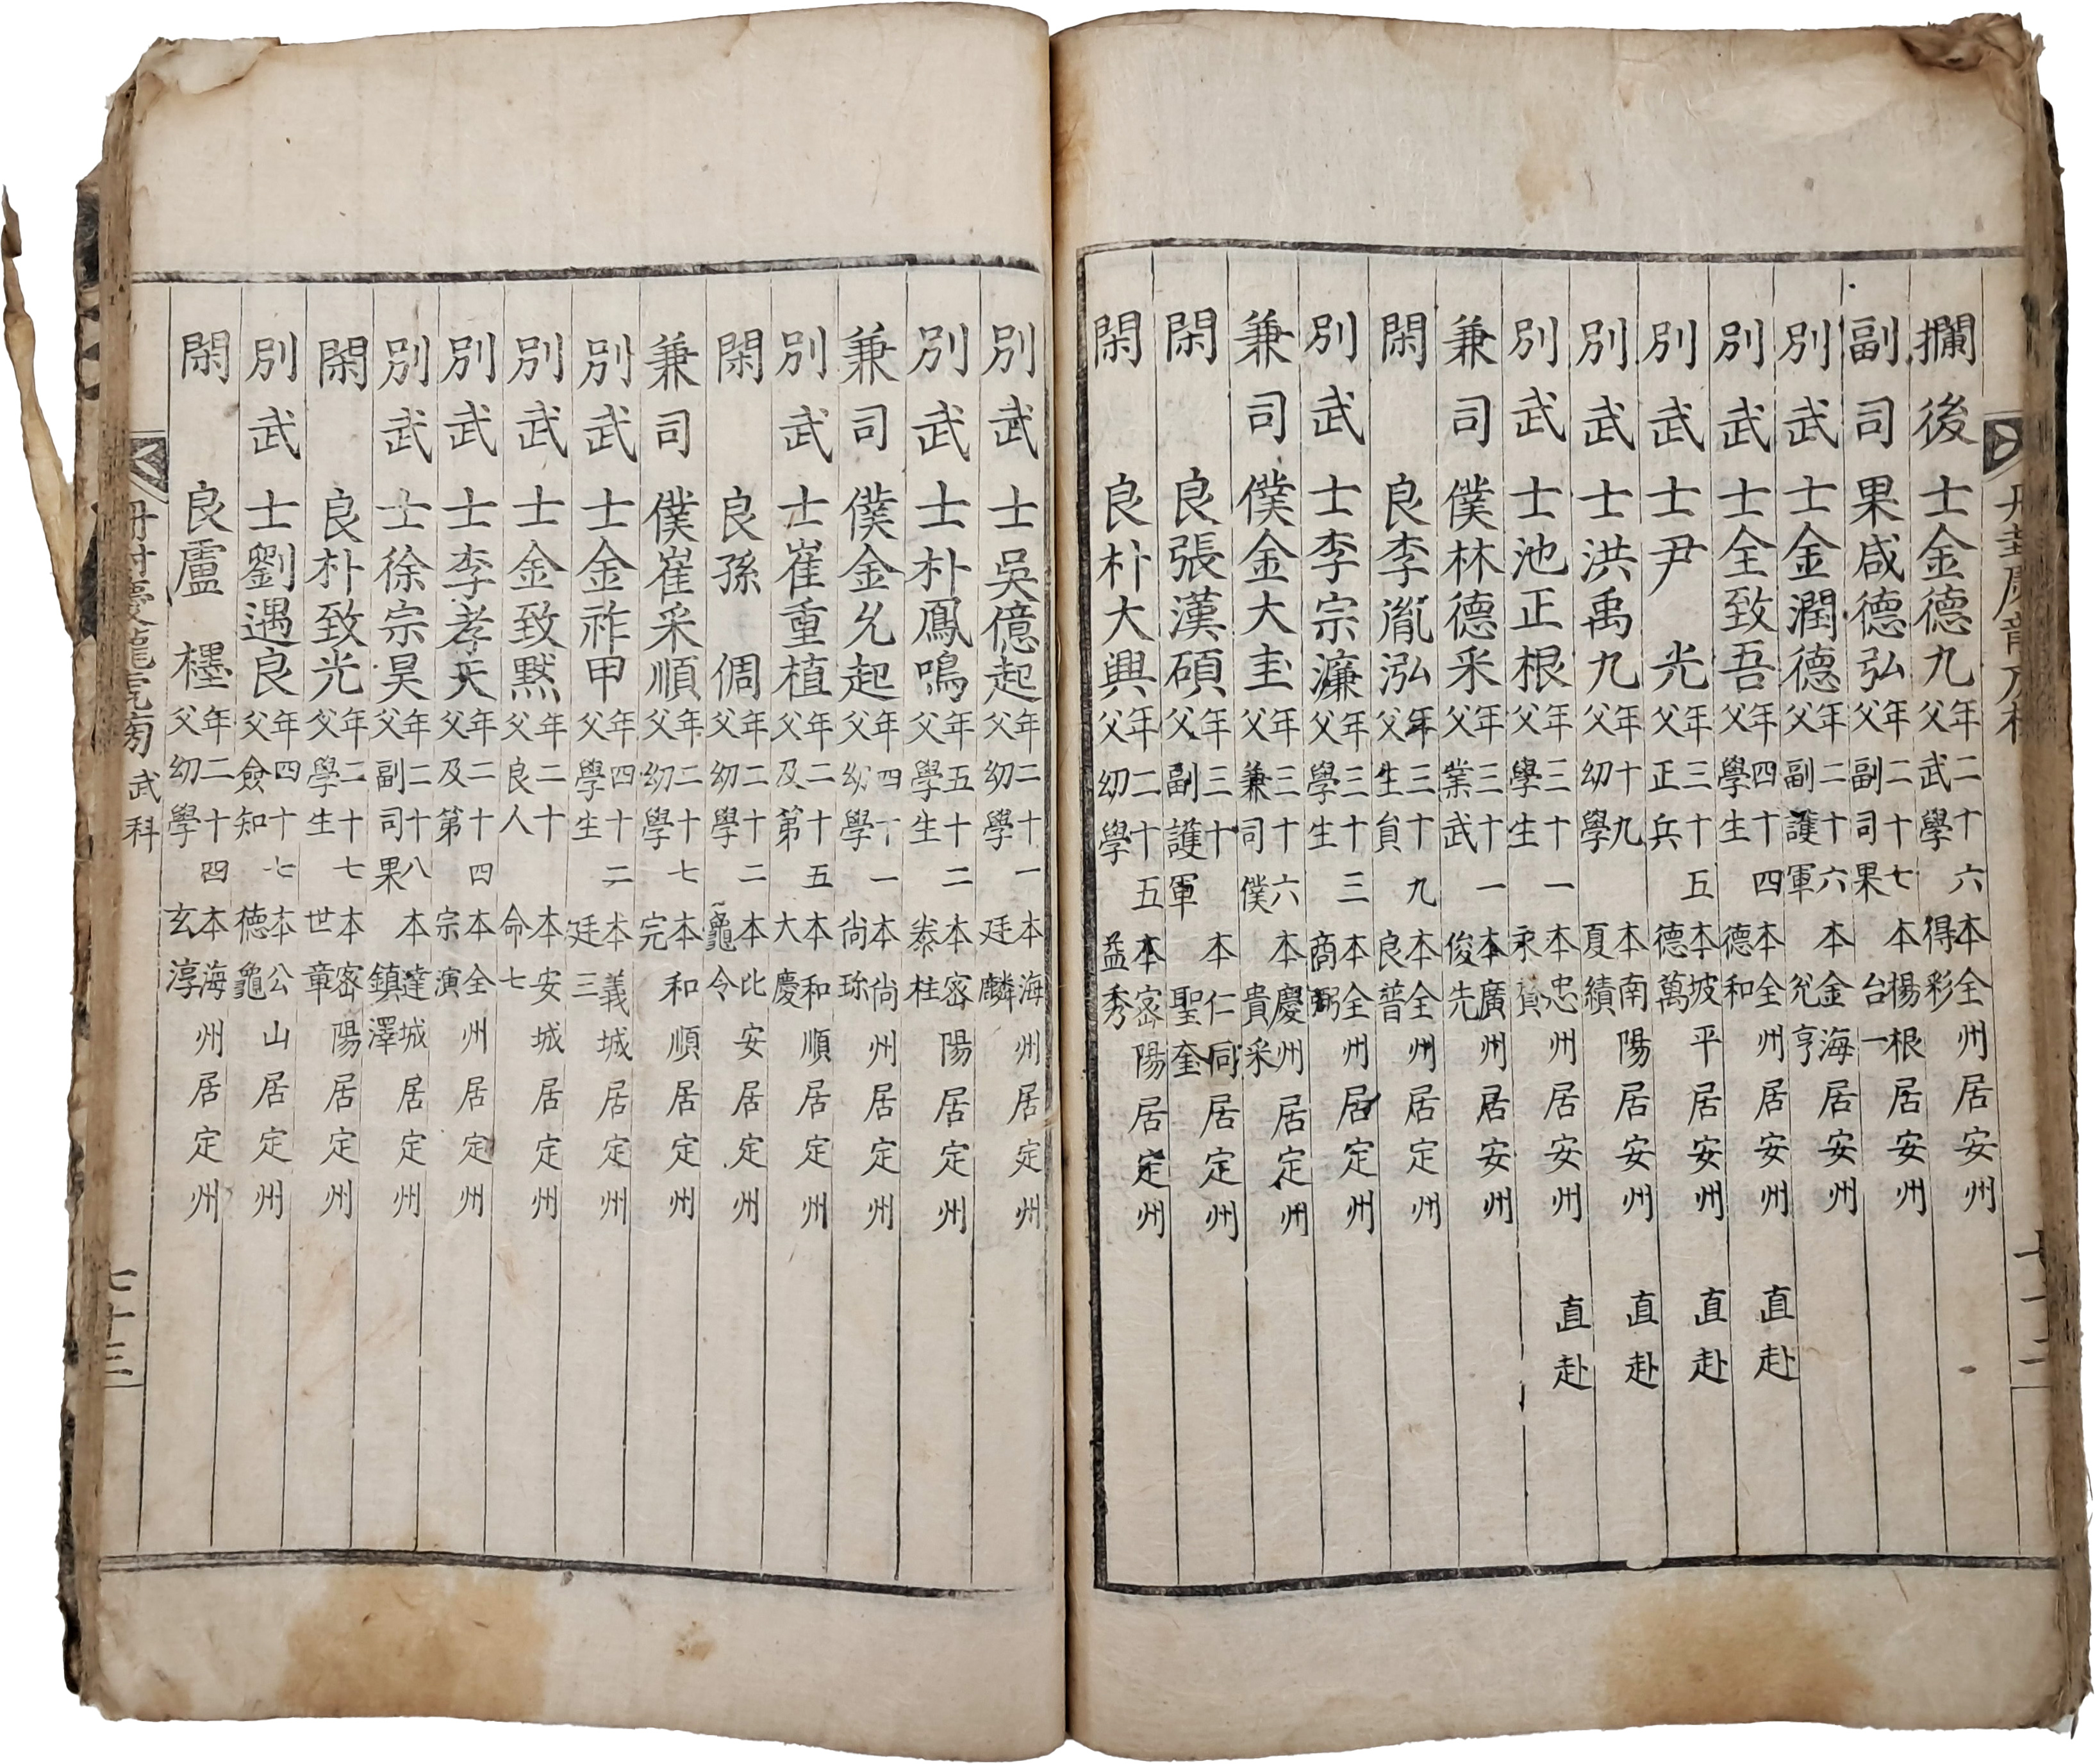 攔後士金德九 年二十六本全州居安州 父武學得彩
副司果咸德弘 年二十七本楊根居安州 父副司果台一
別武士金潤德 年二十六本金海居安州 父副護軍兊亨
別武士全致吾 年四十四本全州居安州 父學生德和 直赴
別武士尹光 年三十五本坡平居安州 父正兵德萬 直赴
別武士洪禹九 年十九本南陽居安州 父幼學夏績 直赴
別武士池正根 年三十一本忠州居安州 父學生永禎 直赴
兼司僕林德采 年三十一本廣州居安州 父業武俊先
閑良李胤泓 年三十九本全州居定州 父生員良普
別武士李宗濂 年三十三本全州居定州 父學生商弼
兼司僕金大圭 年三十六本慶州居定州 父兼司僕貴采
閑良張漢碩 年三十本仁同居定州 父副護軍聖奎
閑良朴大興 年二十五本密陽居定州 父幼學益秀
別武士吳億起 年二十一本海州居定州 父幼學廷麟
別武士朴鳳鳴 年五十二本密陽居定州 父學生泰柱
兼司僕金允起 年四十一本尙州居定州 父幼學尙珎
別武士崔重植 年二十五本和順居定州 父及第大慶
閑良孫倜 年二十二本比安居定州 父幼學龜令
兼司僕崔采順 年二十七本和順居定州 父幼學完
別武士金祚甲 年四十二本義城居定州 父學生廷三
別武士金致默 年二十本安城居定州 父良人命七
別武士李孝天 年二十四本全州居定州 父及第宗演
別武士徐宗昊 年二十八本達城居定州 父副司果鎮澤
閑良朴致光 年二十七本密陽居定州 父學生世章
別武士劉遇良 年四十七本公山居定州 父僉知德龜
閑良盧櫻 年二十四本海州居定州 父幼學玄淳
武科 七十三